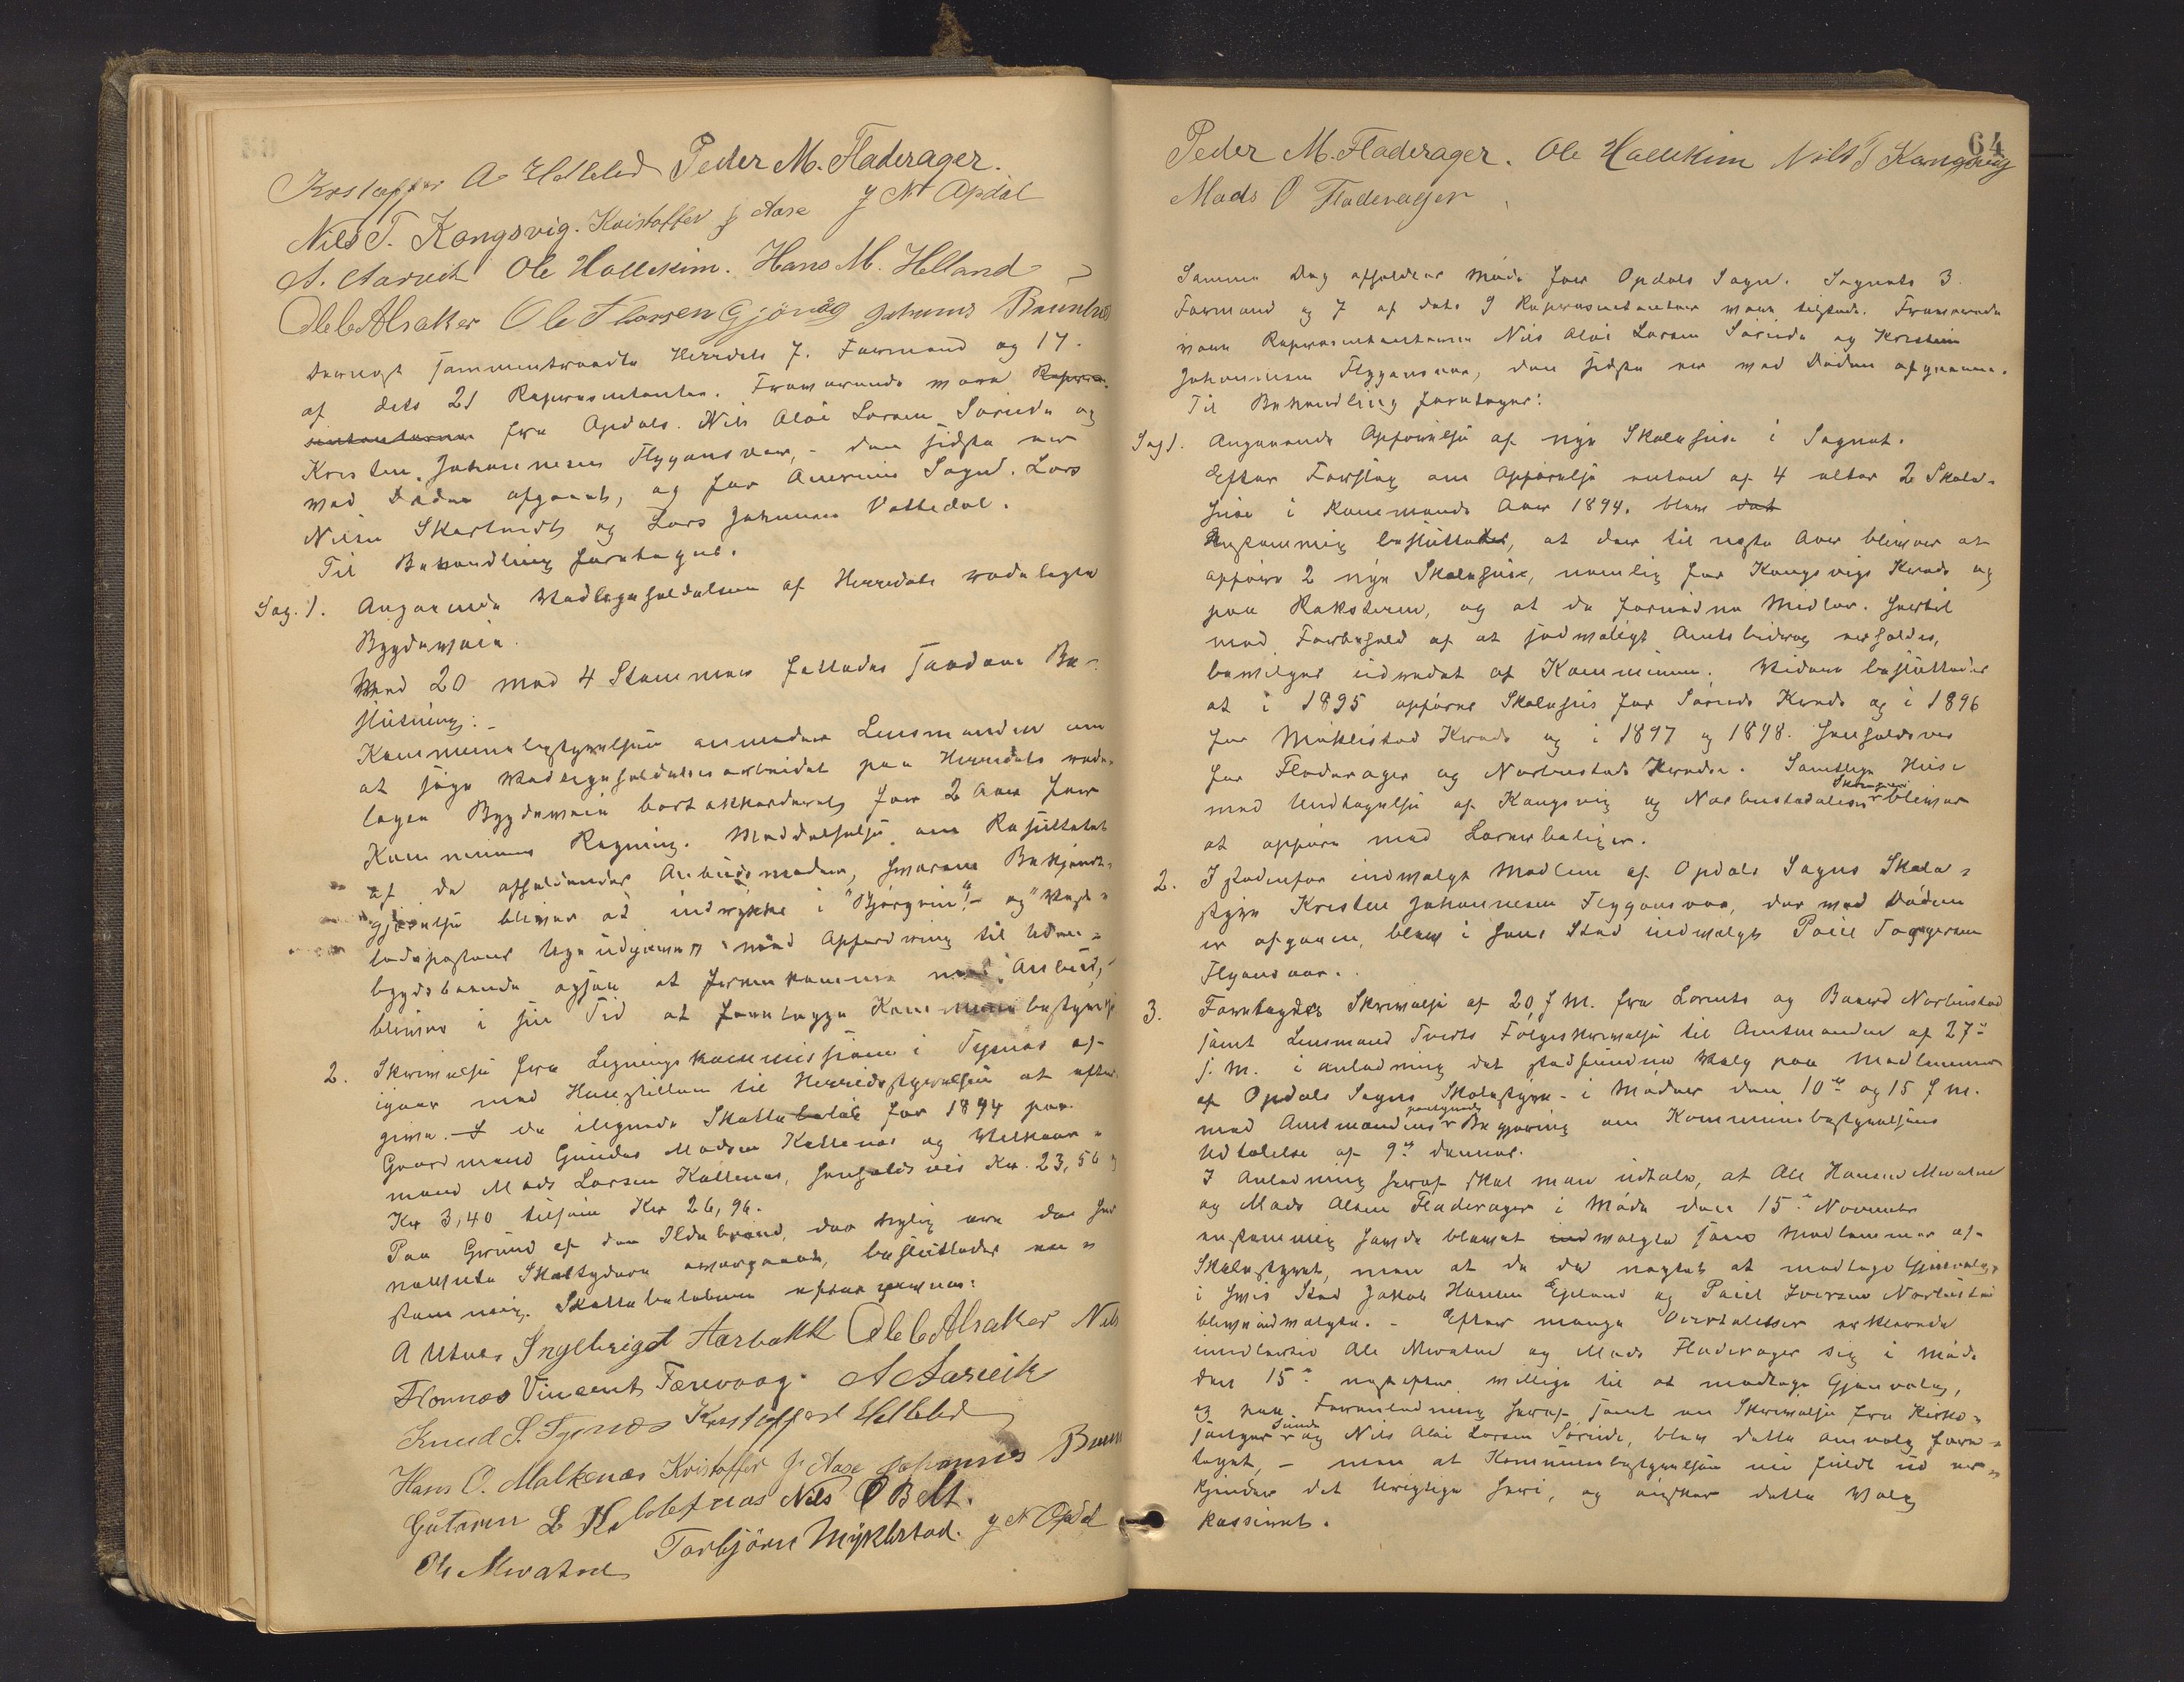 Kristoffer A Helleled Peder M. Fladerager.
Nils T. Kongsvig. Kristoffer J Aase J N Opdal
A. Aarvik Ole Hallekim. Hans M. Helland
Ole C Alsaker Ole Thoresen Gjönåg Johannes
Dernæst sammentraadte Herredets 7. Formænd og 17.
af dets 21 Repræsentanter. Fraværende vare Repræ-
sentanterne fra Opdals. Nils Aloi Larsen Sörende og
Kristen Johannesen Flygansvær, - den sidste er
ved Døden afgaaet, og for Aaenes Sogn. Lars
Nilsen Skartredt og Lars Johannes Vattedal.
Til Behandling foretoges.
Sag. 1. Angaaende Vedligeholdelsen af Herredets rodelagte
Bygdeveie.
Med 20 mod 4 Stemmer fattedes saadan Be-
slutning:
Kommunebestyrelsen anmoder Lensmanden om
at søge Vedligeholdelsesarbeidet paa Herredets rode-
lagte Bygdeveie bortakkorderet for 2 Aar for
Kommunens Regning. Meddelelse om Resultatet
af de afholdende Anbudsmøder, hvorom Bekjendt-
gjørelse bliver at indrykke i "Bjørgvin" og "Vest-
landspostens Ugeudgaven" med Opfordring til Uden-
bygdsboende ogsaa at fremkomme med Anbud,
bliver i sin Tid at forelægge Kommunebestyrelsen
2. Skrivelse fra Ligningskommissionen i Tysnæs af
igaar med Henstillen til Herredsstyrelsen at efter-
give. I de ilignede Skattebeløb for 1894 paa
Gaardmand Gunder Madsen Kattenæs og Velkaar-
mand Mads Larsen Kattenæs, henholdsvis Kr. 23,56 og
Kr 3,40 tilsam Kr 26,96.
Paa Grund af den Ildebrand, der nylig er de her
nævnte Skatydere overgaaet, besluttedes en-
stemmig. Skattebeløbene eftergivnes:
A Utnes Ingebrigt Aarbakk Ole C Alsaker Nils
Thomas Vincent Færevaag. A Aarvik
Knud S. Tysnes Kristoffer A Helleled
Hans O. Malkenæs Kristoffer J. Aase Johannes
Guttorm L Nils O Belt.
Ole Mevatne Torbjørn Myklestad. J N Opdal
64
Peder M. Fladerager. Ole Hallekim Nils T Kongsvig
Mads O Fladerager
Samme Dag afholdtes Møde for Opdals Sogn. Sognets 3
Formænd og 7 af dets 9 Repræsentanter vare tilstede. Fraværende
vare Repræsentanterne Nils Aloi Larsen Sörende og Kristen
Johannesen Flygansvær, den sidste er ved Døden afgaaen.
Til Behandling foretoges:
Sag 1. Angaaende Opførelse af nye Skolehuse i Sognet.
Efter Forslag om Opførelse enten af 4 eller 2 Skole-
huse i kommende Aar 1894. blev det
enstemmig besluttet, at der til næste Aar bliver at
opføre 2 nye Skolehuse, nemlig for Kongsvigs Kreds og
paa Raksteren, og at de fornødne Midler. hertil
med Forbehold af at sædvanligt Amtsbidrag erholdes,
bevilges udredet af Kommunen. Videre besluttedes
at i 1895 opføres Skolehus for Sørends Kreds og i 1896
for Miklestad Kreds og i 1897 og 1898. henholdsvis
for Fladerager og Norbustads Kredse. Samtlige Huse
med Undtagelse af Kongsvig og Norbustadalens Skolehuse bliver
at opføre med Lærerboliger.
2. Istedenfor indvalgt Medlem af Opdals Sogns Skole-
styre Kristen Johannesen Flygansvær, der ved Døden
er afgaaen, blev i hans Sted indvalgt Poul Torgersen
Flygansvær.
3. Foretoges Skrivelse af 20 f M. fra Lorents og Baard Norbustad
samt Lensmand Tveits Følgeskrivelse til Amtmanden af 27de
f. M. i anledning det stedfundne Valg paa Medlemmer
af Opdals Sogns Skolestyre i Møder den 10de og 15 f M.
med Amtmandens paategnede Begjæring om Kommunebestyrelsens
Udtalelse af 9de dennes.
I Anledning heraf skal man udtale, at Ole Hansen Mevatne
og Mads Olsen Fladerager i Møde den 15de November
enstemmig havde blevet indvalgte som Medlemmer af
Skolestyret, men at de da nægtet at modtage Gjenvalg,
i hvis Sted Jakob Hansen Epland og Poul Iversen Norbustad
blev indvalgte. - Efter mange Overtalelser erklærede
imidlertid Ole Mevatne og Mads Fladerager sig i Møde
den 15de næstefter villige til at modtage Gjenvalg,
og paa Foranledning heraf samt en Skrivelse fra Kirke-
sanger Sunde og Nils Aloi Larsen Sörende, blev dette omvalg fore-
taget, - men at Kommunebestyrelsen nu fuldt ud er-
kjender det Urigtige heri, og ønsker dette Valg
kasseret.